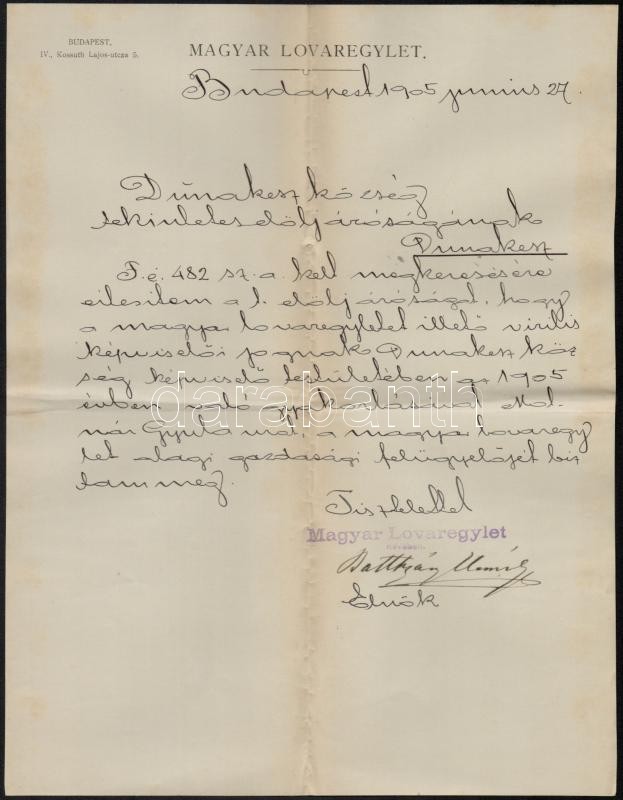 BUDAPEST,
IV., Kossuth Lajos-utcza 5.
MAGYAR LOVAREGYLET.
Budapest 1905 junius 27.
Dunakesz község
tekintetes elöljáróságának
Dunakesz
F. é. 482 sz. a. kelt megkeresésére
értesitem a t. elöljáróságot, hogy
a magyar lovaregyletet illető virilis
képviselői jognak Dunakesz köz-
ség képviselő testületében az 1905
évben való gyakorlásával Mol-
nár Gyula urat, a magyar lovaregy
let alagi gazdasági felügyelőjét biz
tam meg.
Tisztelettel
Magyar Lovaregylet
Batthyány Elemér
Elnök
darabanth